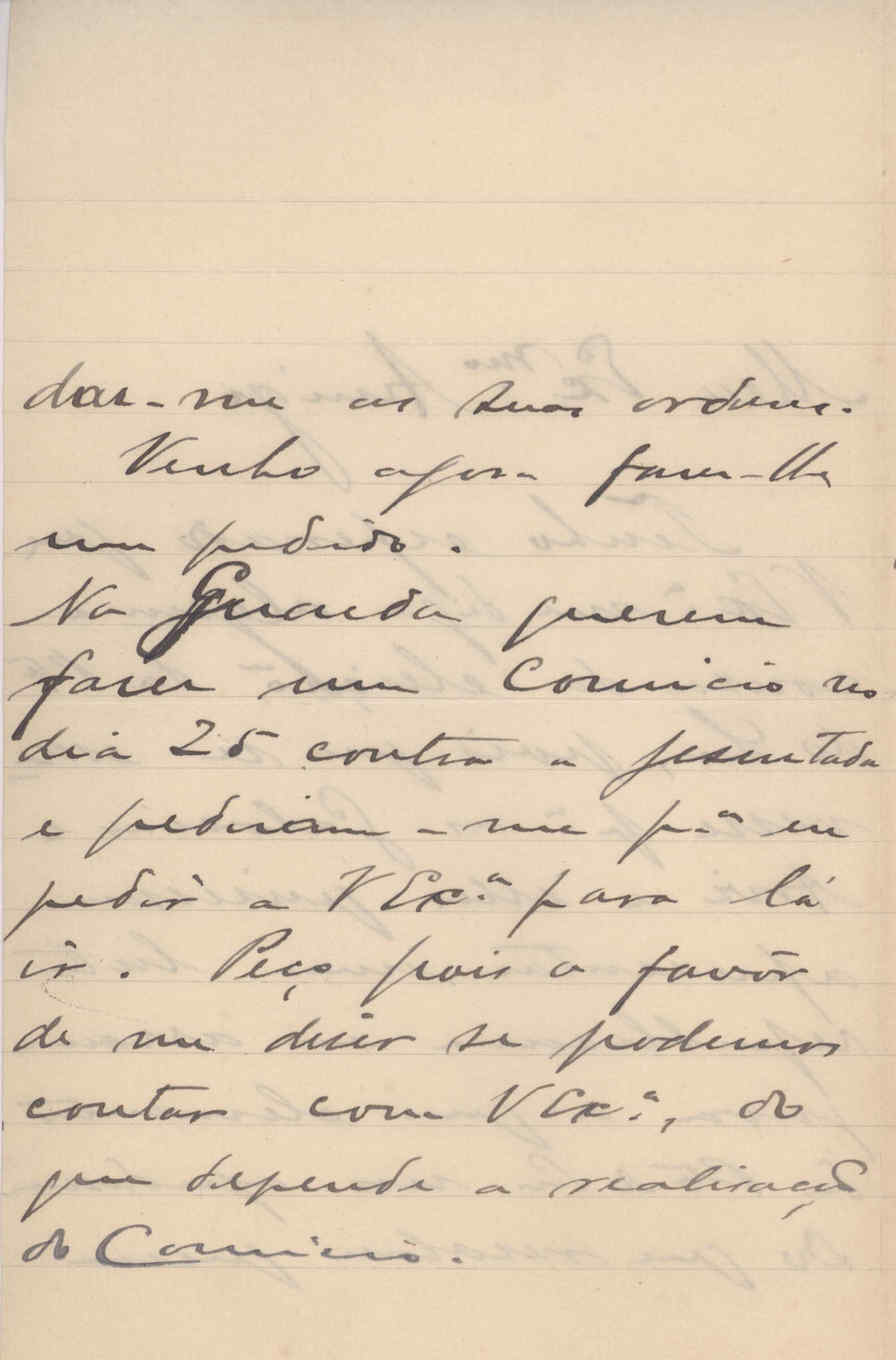 dar-me as suas ordens.
Venho agora faser-lhe
um pedido.
Na Guarda querem
faser um Comicio no
dia 25 contra a Jesuitada
e pediram-me p.ª eu
pedir a V Exc.ª para lá
ir. Peço pois o favôr
de me diser se podemos
contar com V Exc.ª, do
que depende a realisação
do Comicio.